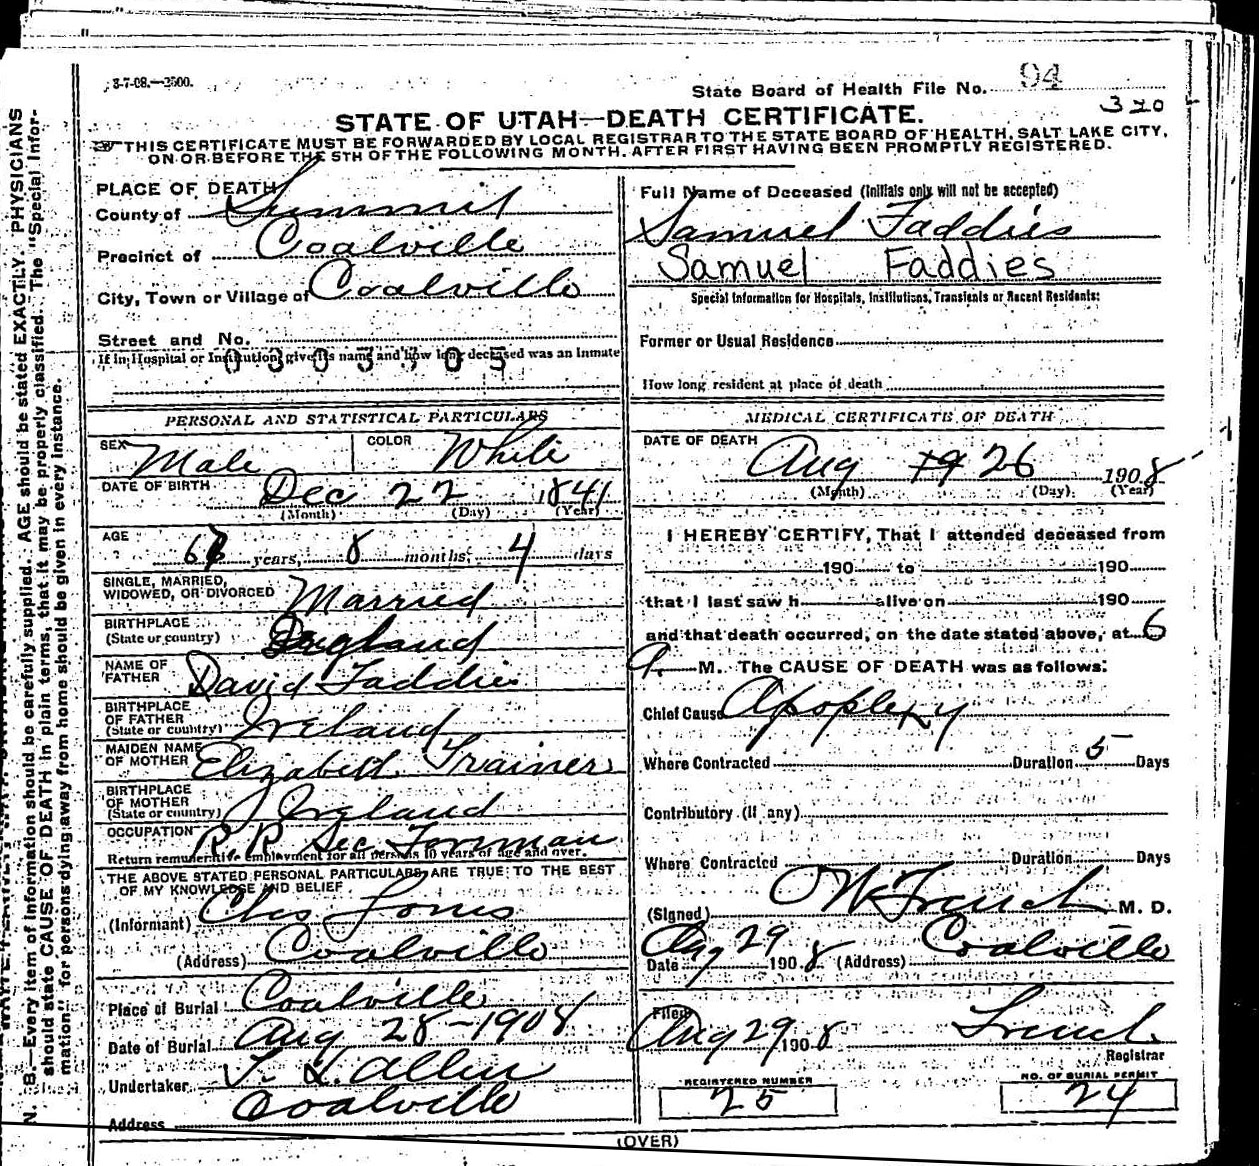 3-7-08.—2500.
State Board of Health File No. 94
320
STATE OF UTAH—DEATH CERTIFICATE.
THIS CERTIFICATE MUST BE FORWARDED BY LOCAL REGISTRAR TO THE STATE BOARD OF HEALTH, SALT LAKE CITY,
ON OR BEFORE THE 5TH OF THE FOLLOWING MONTH, AFTER FIRST HAVING BEEN PROMPTLY REGISTERED.
N. B.—Every item of information should be carefully supplied. AGE should be stated EXACTLY. PHYSICIANS
should state CAUSE OF DEATH in plain terms, that it may be properly classified. The "Special Infor-
mation" for persons dying away from home should be given in every instance.
PLACE OF DEATH
County of Summit
Precinct of Coalville
City, Town or Village of Coalville
Street and No.
If in Hospital or Institution, give its name and how long deceased was an Inmate
PERSONAL AND STATISTICAL PARTICULARS
SEX Male COLOR White
DATE OF BIRTH Dec 22 1841
(Month) (Day) (Year)
AGE 66 years, 8 months, 4 days
SINGLE, MARRIED,
WIDOWED, OR DIVORCED Married
BIRTHPLACE
(State or country) England
NAME OF
FATHER David Faddies
BIRTHPLACE
OF FATHER
(State or country) Ireland
MAIDEN NAME
OF MOTHER Elizabeth Trainer
BIRTHPLACE
OF MOTHER
(State or country) Ireland
OCCUPATION R. R. Sec Forman
Return remunerative employment for all persons 10 years of age and over.
THE ABOVE STATED PERSONAL PARTICULARS ARE TRUE TO THE BEST
OF MY KNOWLEDGE AND BELIEF
(Informant) Chas Jones
(Address) Coalville
Place of Burial Coalville
Date of Burial Aug 28-1908
Undertaker T. L. Allen
Address Coalville
Full Name of Deceased (Initials only will not be accepted)
Samuel Faddies
Samuel Faddies
Special Information for Hospitals, Institutions, Transients or Recent Residents:
Former or Usual Residence
How long resident at place of death
MEDICAL CERTIFICATE OF DEATH
DATE OF DEATH
Aug 26 1908
(Month) (Day) (Year)
I HEREBY CERTIFY, That I attended deceased from
190 to 190
that I last saw h alive on 190
and that death occurred, on the date stated above, at 6
M. The CAUSE OF DEATH was as follows:
Chief Cause Apoplexy
Where Contracted Duration 5 Days
Contributory (If any)
Where Contracted Duration Days
(Signed) French M. D.
Date Aug 29 1908 (Address) Coalville
Filed
Aug 29 1908 French
Registrar
REGISTERED NUMBER
25
NO. OF BURIAL PERMIT
24
(OVER)